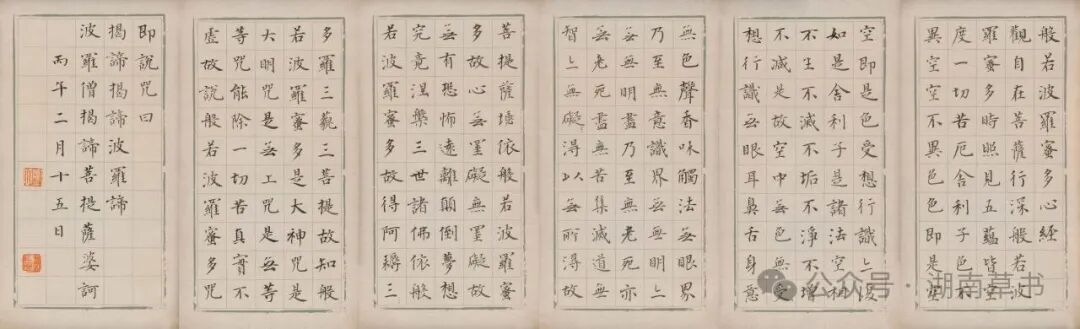 般若波羅蜜多心經
觀自在菩薩行深般若波
羅蜜多時照見五蘊皆空
度一切苦厄舍利子色不
異空空不異色色即是空
空即是色受想行識亦復
如是舍利子是諸法空相
不生不滅不垢不淨不增
不減是故空中無色無受
想行識無眼耳鼻舌身意
無色聲香味觸法無眼界
乃至無意識界無無明亦
無無明盡乃至無老死亦
無老死盡無苦集滅道無
智亦無礙得以無所得故
菩提薩埵依般若波羅蜜
多故心無罣礙無罣礙故
無有恐怖遠離顛倒夢想
究竟涅槃三世諸佛依般
若波羅蜜多故得阿耨三
多羅三藐三菩提故知般
若波羅蜜多是大神咒是
大明咒是無上咒是無等
等咒能除一切苦真實不
虛故說般若波羅蜜多咒
即說咒曰
揭諦揭諦波羅諦
波羅僧揭諦菩提薩婆訶
丙午二月十五日
公众号·湖南草书